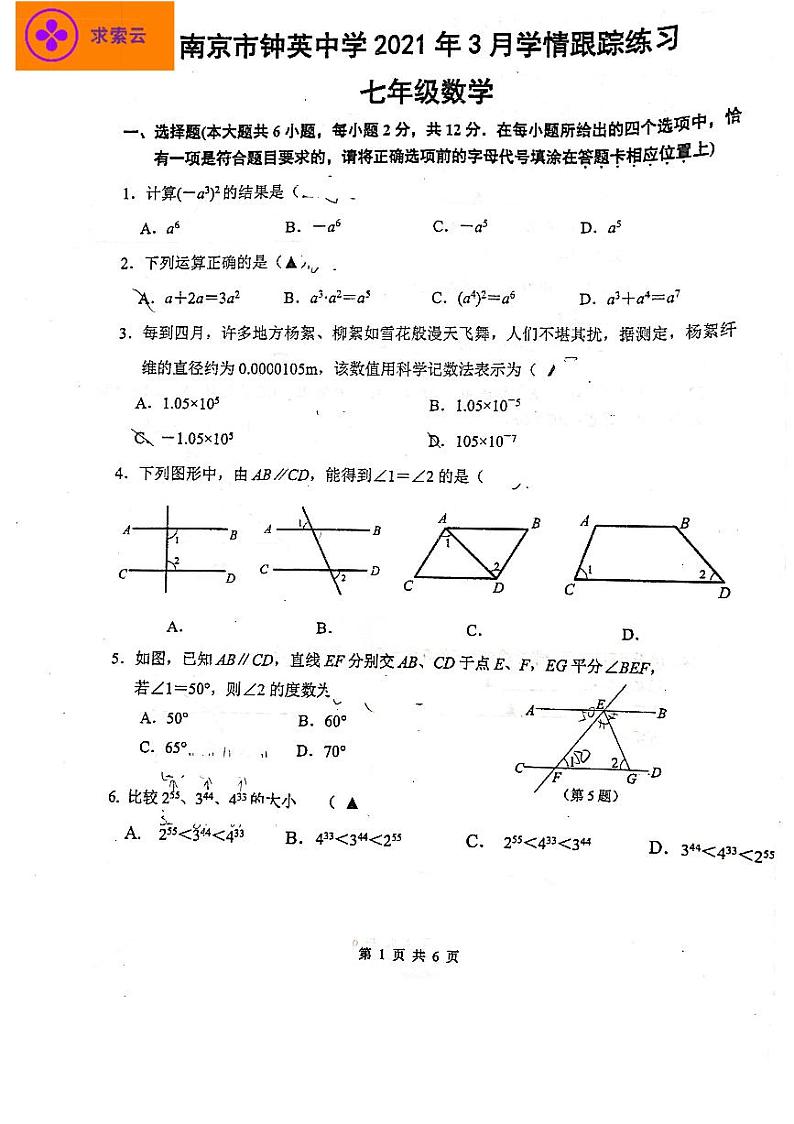 求索云
南京市钟英中学 2021 年 3 月学情跟踪练习
七年级数学
一、选择题(本大题共 6 小题，每小题 2 分，共 12 分．在每小题所给出的四个选项中，恰
有一项是符合题目要求的，请将正确选项前的字母代号填涂在答题卡相应位置上)
1．计算(－a³)² 的结果是（
A．a⁶ B．－a⁶ C．－a⁵ D．a⁵
2．下列运算正确的是（▲
A．a＋2a＝3a² B．a³·a²＝a⁵ C．(a⁴)²＝a⁶ D．a³＋a⁴＝a⁷
3．每到四月，许多地方杨絮、柳絮如雪花般漫天飞舞，人们不堪其扰，据测定，杨絮纤
维的直径约为 0.0000105m，该数值用科学记数法表示为（
A．1.05×10⁵ B．1.05×10⁻⁵
C．－1.05×10⁵ D．105×10⁻⁷
4．下列图形中，由 AB∥CD，能得到∠1＝∠2 的是（
A B 1 2 C D
A B 1 2 C D
A B 1 2 C D
A B 1 2 C D
A． B． C． D．
5．如图，已知 AB∥CD，直线 EF 分别交 AB、CD 于点 E、F，EG 平分∠BEF，
若∠1＝50°，则∠2 的度数为
A．50° B．60°
C．65° D．70°
A E B
50
C F 1 50 2 G D
（第 5 题）
6. 比较 2⁵⁵、3⁴⁴、4³³ 的大小 （ ▲
A. 2⁵⁵＜3⁴⁴＜4³³ B．4³³＜3⁴⁴＜2⁵⁵ C． 2⁵⁵＜4³³＜3⁴⁴ D．3⁴⁴＜4³³＜2⁵⁵
第 1 页 共 6 页